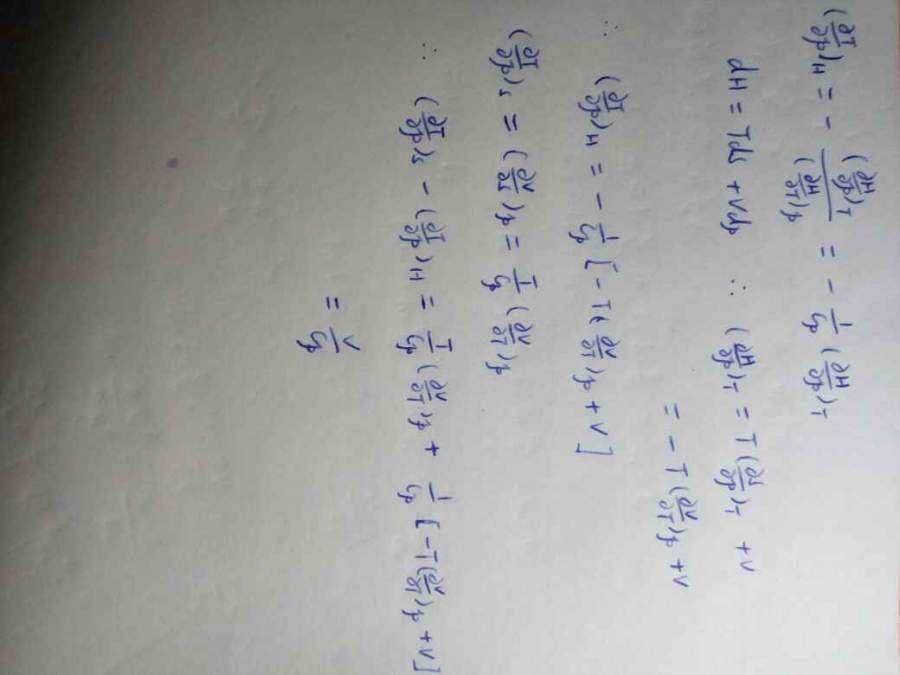 (∂T/∂p)_H = - (∂H/∂p)_T / (∂H/∂T)_p = - 1/C_p (∂H/∂p)_T
dH = TdS + Vdp ∴ (∂H/∂p)_T = T(∂S/∂p)_T + V
= - T(∂V/∂T)_p + V
∴ (∂T/∂p)_H = - 1/C_p [- T(∂V/∂T)_p + V]
(∂T/∂p)_S = (∂V/∂S)_p = T/C_p (∂V/∂T)_p
∴ (∂T/∂p)_S - (∂T/∂p)_H = T/C_p (∂V/∂T)_p + 1/C_p [-T(∂V/∂T)_p + V]
= V/C_p